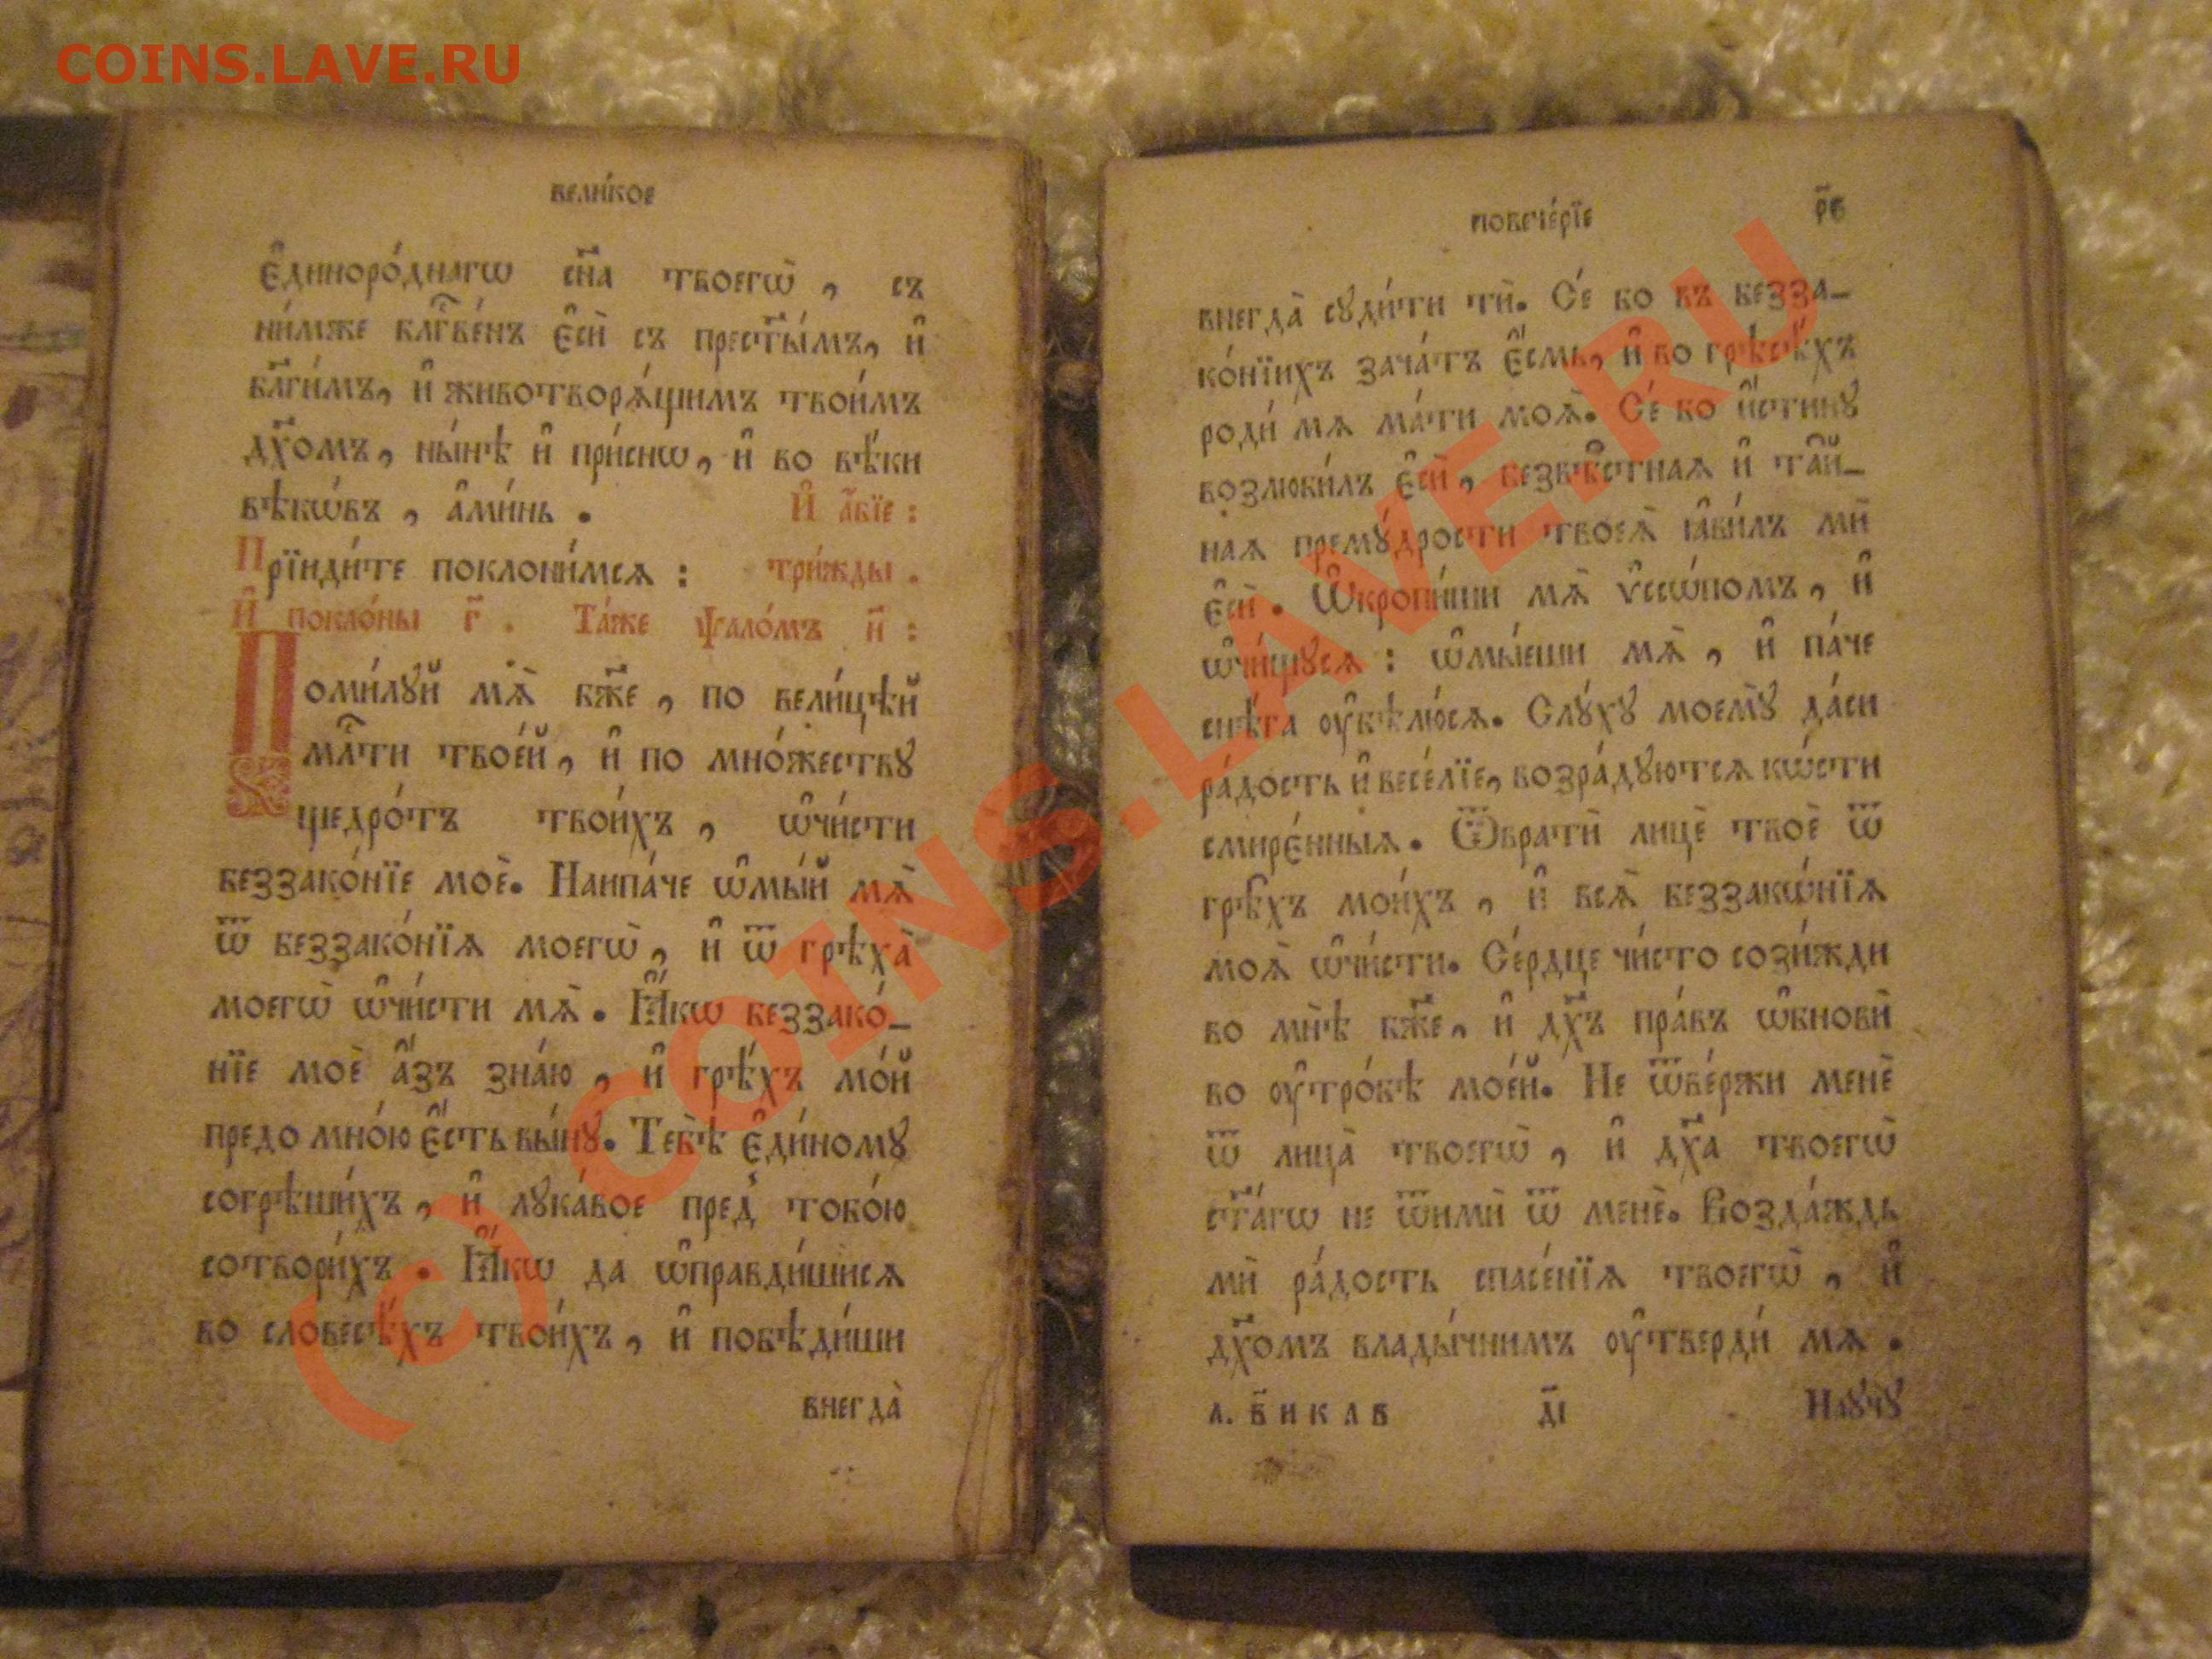 COINS.LAVE.RU
вели́кое
є҆диноро́днагѡ сн҃а твоегѡ̀, съ
ни́мже блгⷭ҇ве́нъ є҆сѝ съ прест҃ы́мъ, и҆
бл҃ги́мъ, и҆ животворѧ́щимъ твои́мъ
дх҃омъ, ны́нѣ и҆ при́снѡ, и҆ во вѣ́ки
вѣкѡ́въ, а҆ми́нь. И҆ а҆́бїе:
Прїиди́те поклони́мсѧ: три́жды.
И҆ покло́ны г҃. Та́же ѱало́мъ н҃:
Поми́лꙋй мѧ̀ бж҃е, по вели́цѣй
млⷭ҇ти твое́й, и҆ по мно́жествꙋ
щедро́тъ твои́хъ, ѡ҆чи́сти
беззако́нїе моѐ. Наипа́че ѡ҆мы́й мѧ̀
ѿ беззако́нїѧ моегѡ̀, и҆ ѿ грѣха̀
моегѡ̀ ѡ҆чи́сти мѧ̀. Ꙗ҆́кѡ беззако́-
нїе моѐ а҆́зъ зна́ю, и҆ грѣ́хъ мо́й
предо мно́ю є҆́сть вы́нꙋ. Тебѣ̀ є҆ди́номꙋ
согрѣши́хъ, и҆ лꙋка́вое пред̾ тобо́ю
сотвори́хъ. Ꙗ҆́кѡ да ѡ҆правди́шисѧ
во словесѣ́хъ твои́хъ, и҆ побѣди́ши
внегда̀
повече́рїе р҃в
внегда̀ сꙋди́ти тѝ. Се́ бо въ безза-
ко́нїихъ зача́тъ є҆́смь, и҆ во грѣсѣ́хъ
роди́ мѧ ма́ти моѧ̀. Се́ бо и҆́стинꙋ
возлюби́лъ є҆сѝ, безвѣ́стнаѧ и҆ та́й-
наѧ премꙋ́дрости твоеѧ̀ ꙗ҆ви́лъ мѝ
є҆сѝ. Ѡ҆кропи́ши мѧ̀ ѵ҆ссѡ́помъ, и҆
ѡ҆чи́щꙋсѧ: ѡ҆мы́еши мѧ̀, и҆ па́че
снѣ́га ᲂу҆бѣлю́сѧ. Слꙋ́хꙋ моемꙋ̀ да́си
ра́дость и҆ весе́лїе, возра́дꙋютсѧ кѡ́сти
смире́нныѧ. Ѿвратѝ лицѐ твоѐ ѿ
грѣ̑хъ мои́хъ, и҆ всѧ̀ беззакѡ́нїѧ
моѧ̀ ѡ҆чи́сти. Се́рдце чи́сто сози́жди
во мнѣ̀ бж҃е, и҆ дх҃ъ пра́въ ѡ҆бновѝ
во ᲂу҆тро́бѣ мое́й. Не ѿве́ржи менѐ
ѿ лица̀ твоегѡ̀, и҆ дх҃а твоегѡ̀
ст҃а́гѡ не ѿимѝ ѿ менѐ. Возда́ждь
мѝ ра́дость спасе́нїѧ твоегѡ̀, и҆
дх҃омъ влады́чнимъ ᲂу҆твердѝ мѧ.
д҃і Наꙋчꙋ̀
(c) COINS.LAVE.RU